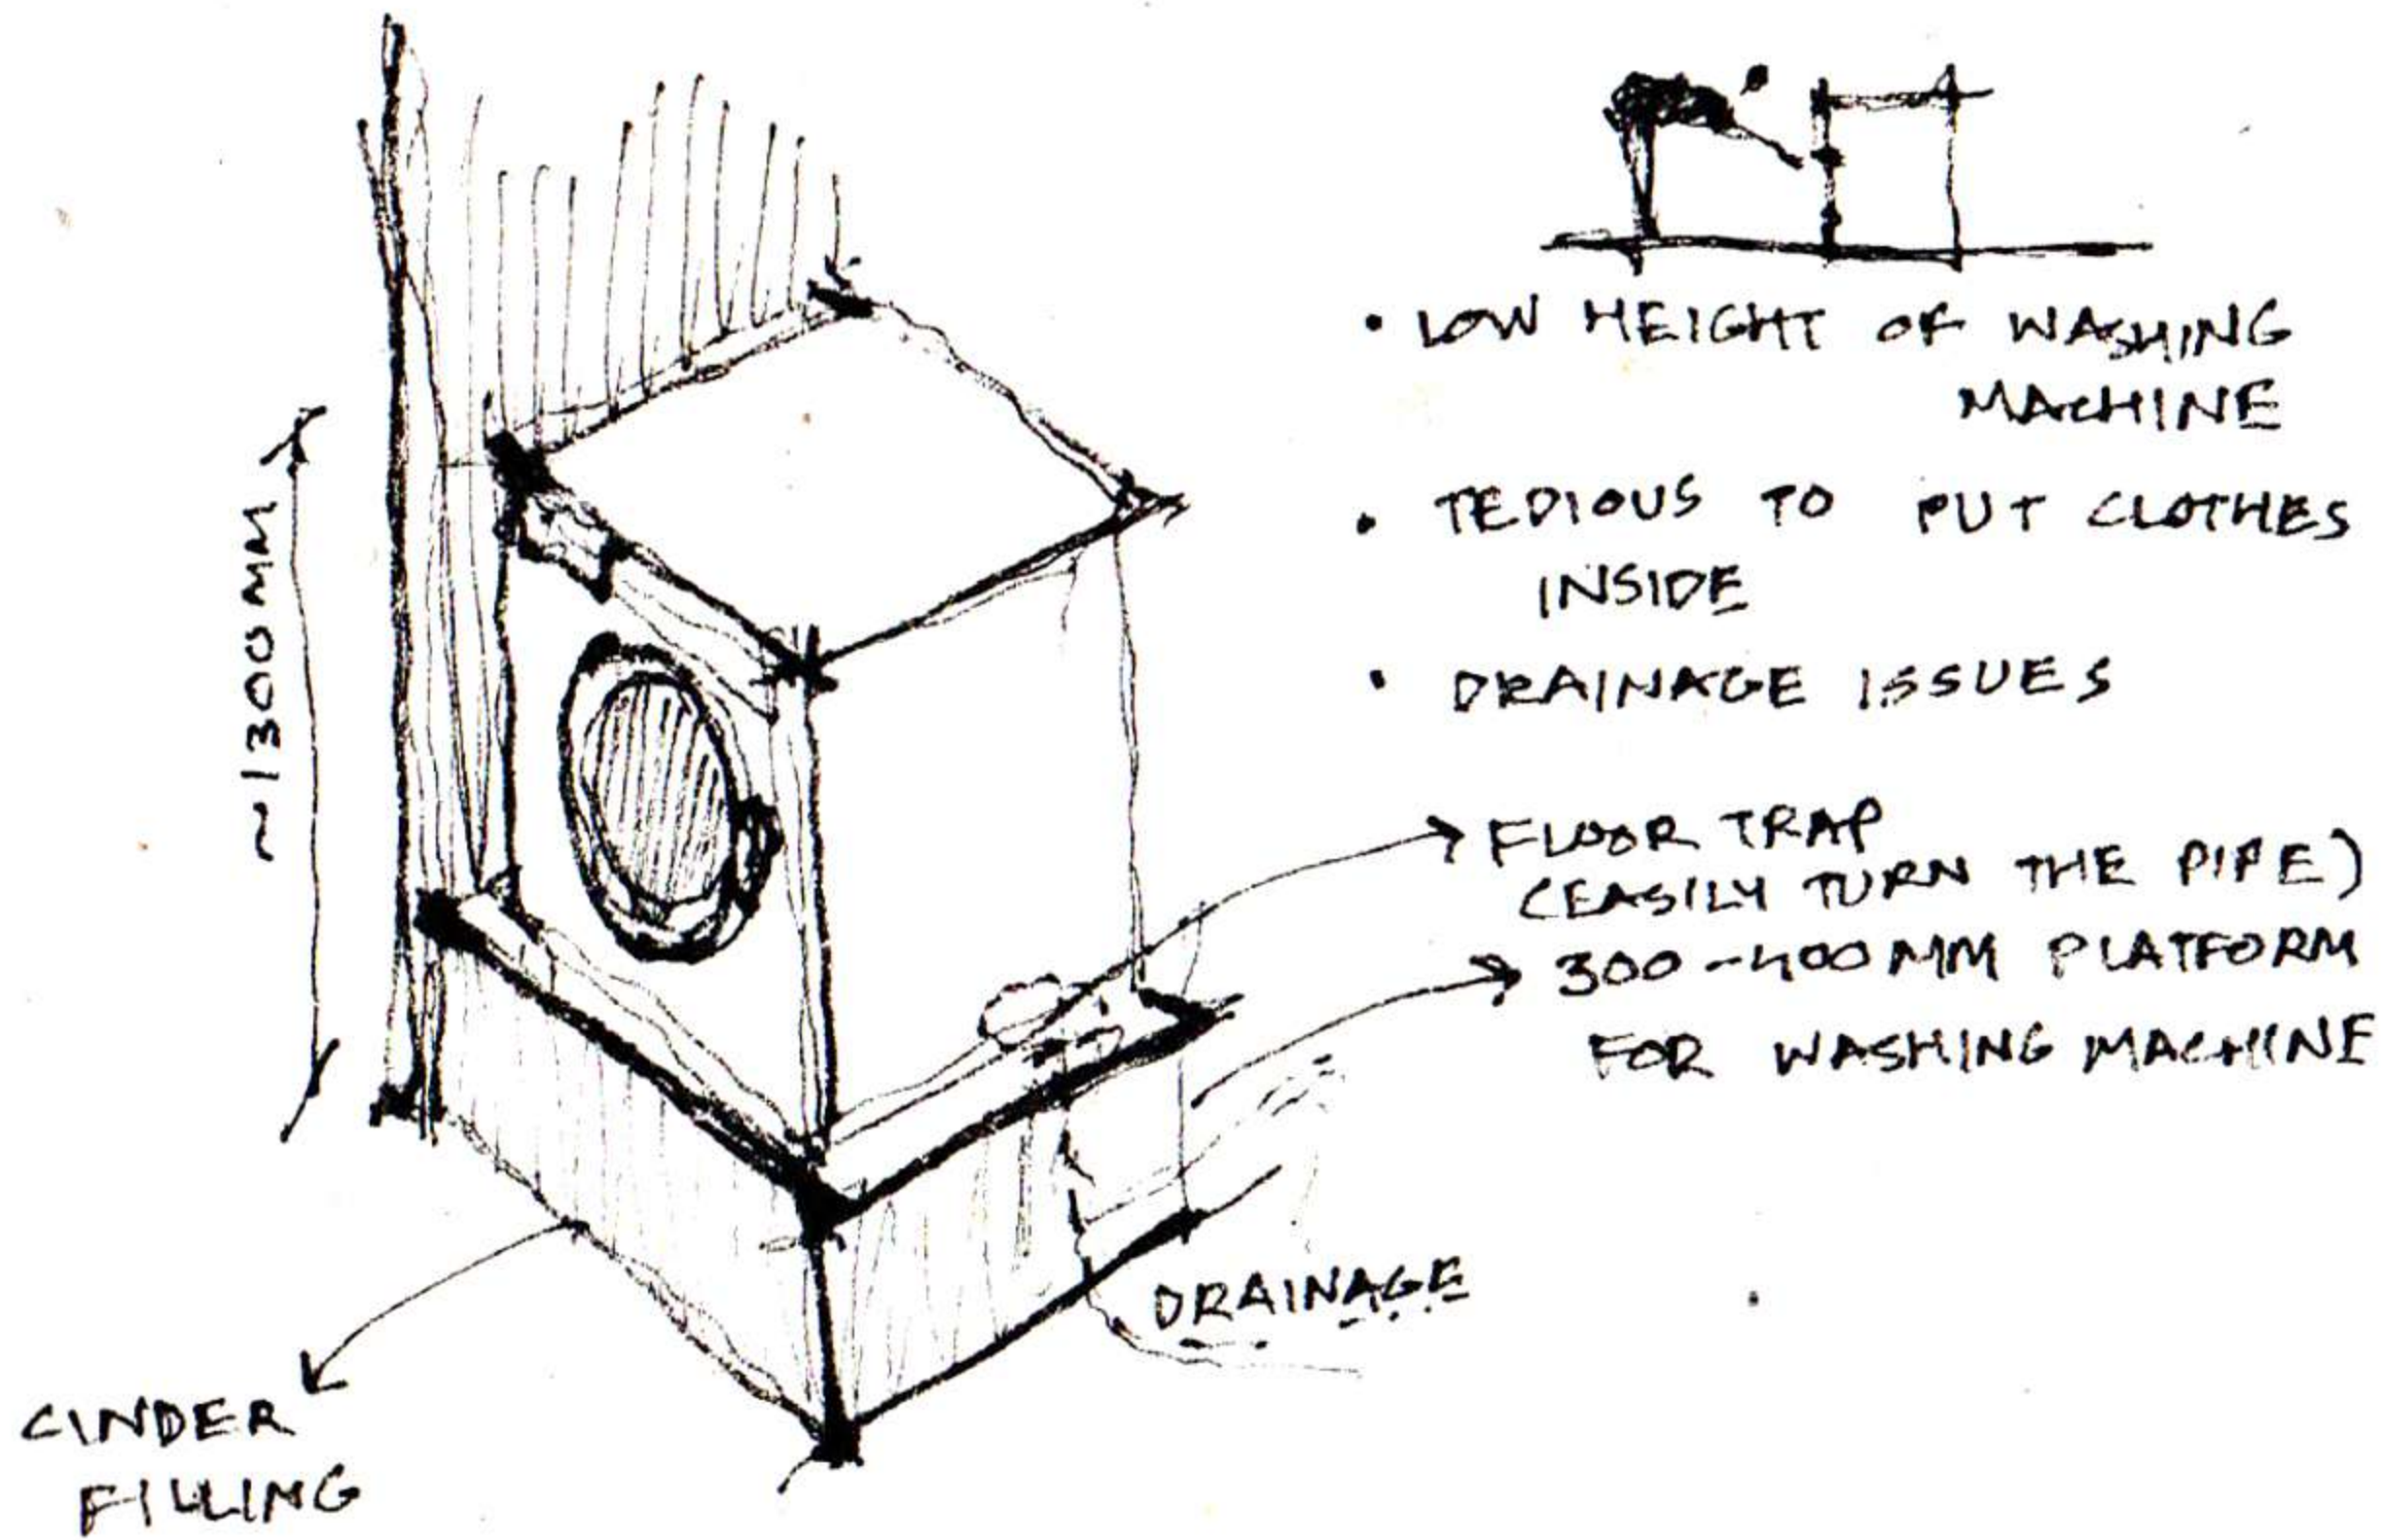 • LOW HEIGHT OF WASHING
MACHINE
• TEDIOUS TO PUT CLOTHES
INSIDE
• DRAINAGE ISSUES
~1300MM
FLOOR TRAP
(EASILY TURN THE PIPE)
300-400MM PLATFORM
FOR WASHING MACHINE
DRAINAGE
CINDER
FILLING